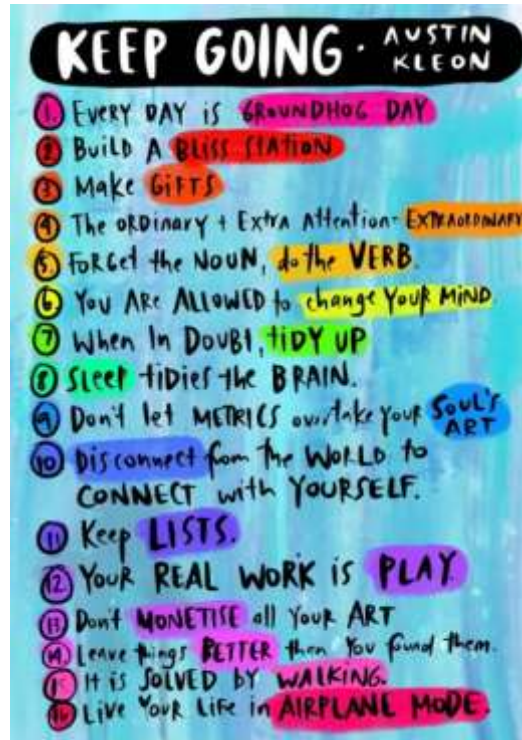 KEEP GOING · AUSTIN KLEON
1. EVERY DAY is GROUNDHOG DAY
2. BUILD A BLISS STATION
3. Make GIFTS
4. The ORDinary + Extra Attention = EXTRAORDINARY
5. FORGet the NOUN, do the VERB.
6. YOU ARE ALLOWED to change YOUR MIND
7. When In DOUBT, tiDY UP
8. Sleep tiDies the BRAIN.
9. Don't let METRICS overtake your SOUL'S ART
10. Disconnect from the WORLD to
CONNECT with YOURSELF.
11. Keep LISTS.
12. YOUR REAL WORK is PLAY
13. Don't MONETISE all YOUR ART
14. Leave things BETTER then You found them.
15. IT is SOLVED BY WALKING.
16. Live YOUR LiFe in AIRPLANE MODE.